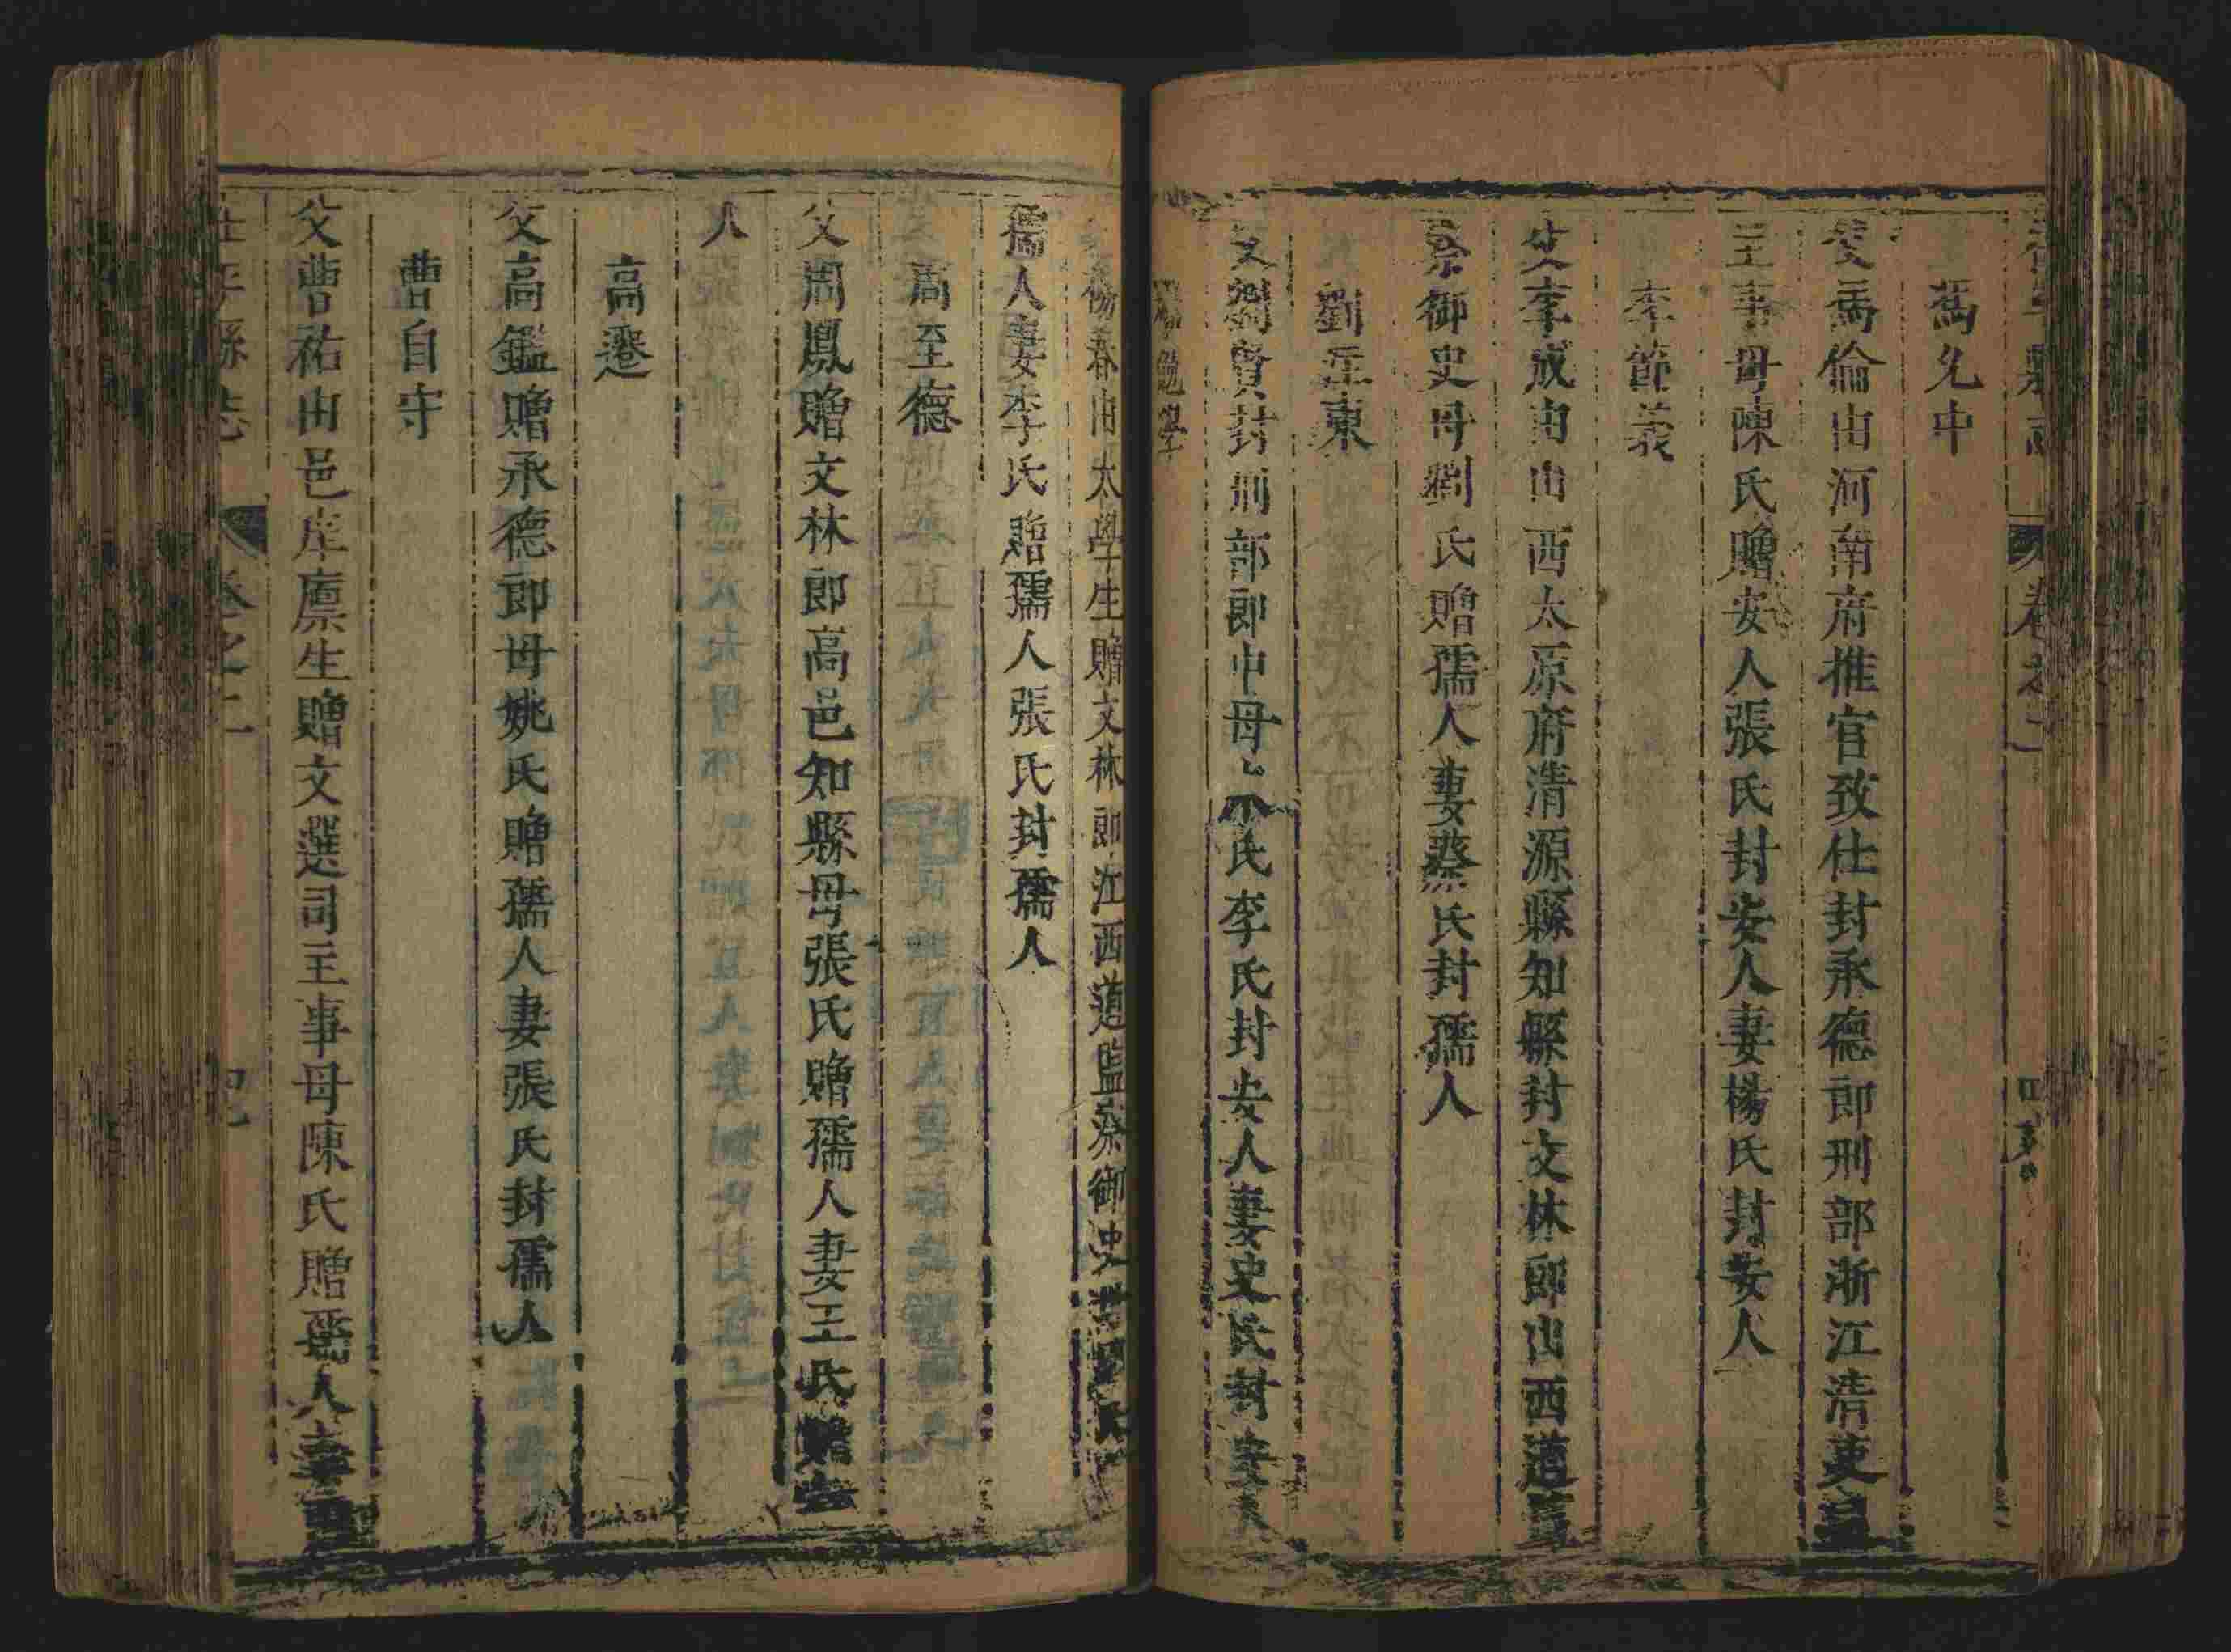 馮允中
父馮倫由河南府推官致仕封承德郎刑部浙江清吏
主事母陳氏贈安人張氏封安人妻楊氏封安人
李節義
父李成由山西太原府清源縣知縣封文林郎山西道監
察御史母劉氏贈孺人妻蔡氏封孺人
劉東
父劉賢封刑部郎中母氏李氏封安人妻史氏封安人
楊勉學
父楊春由太學生贈文林郎江西道監察御史
孺人妻李氏贈孺人張氏封孺人
周至德
父周鳳贈文林郎高邑知縣母張氏贈孺人妻王氏贈
人
高遷
父高鑑贈承德郎母姚氏贈孺人妻張氏封孺人
曹自守
父曹祐由邑庠廩生贈文選司主事母陳氏贈孺人妻
平縣志 卷之二